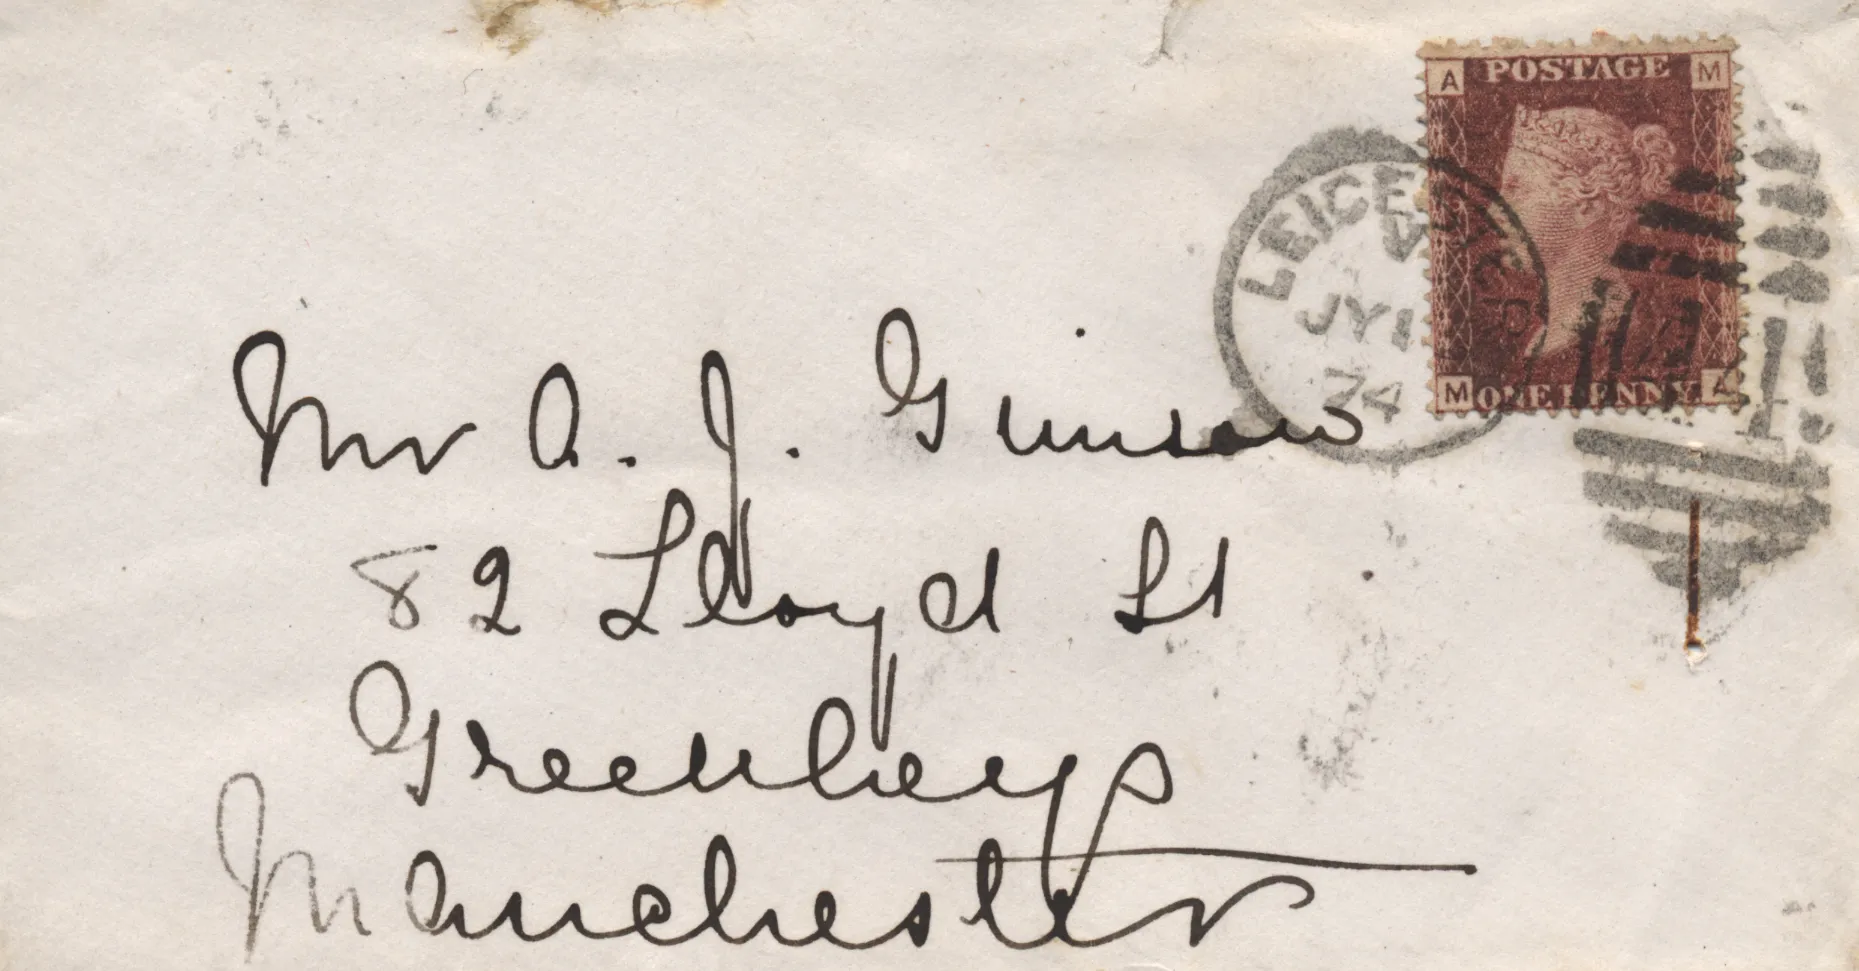 A POSTAGE M
M ONE PENNY A
LEICESTER
JY 1
74
Mr A. J. Gimson
82 Lloyd St
Greenheys
Manchester